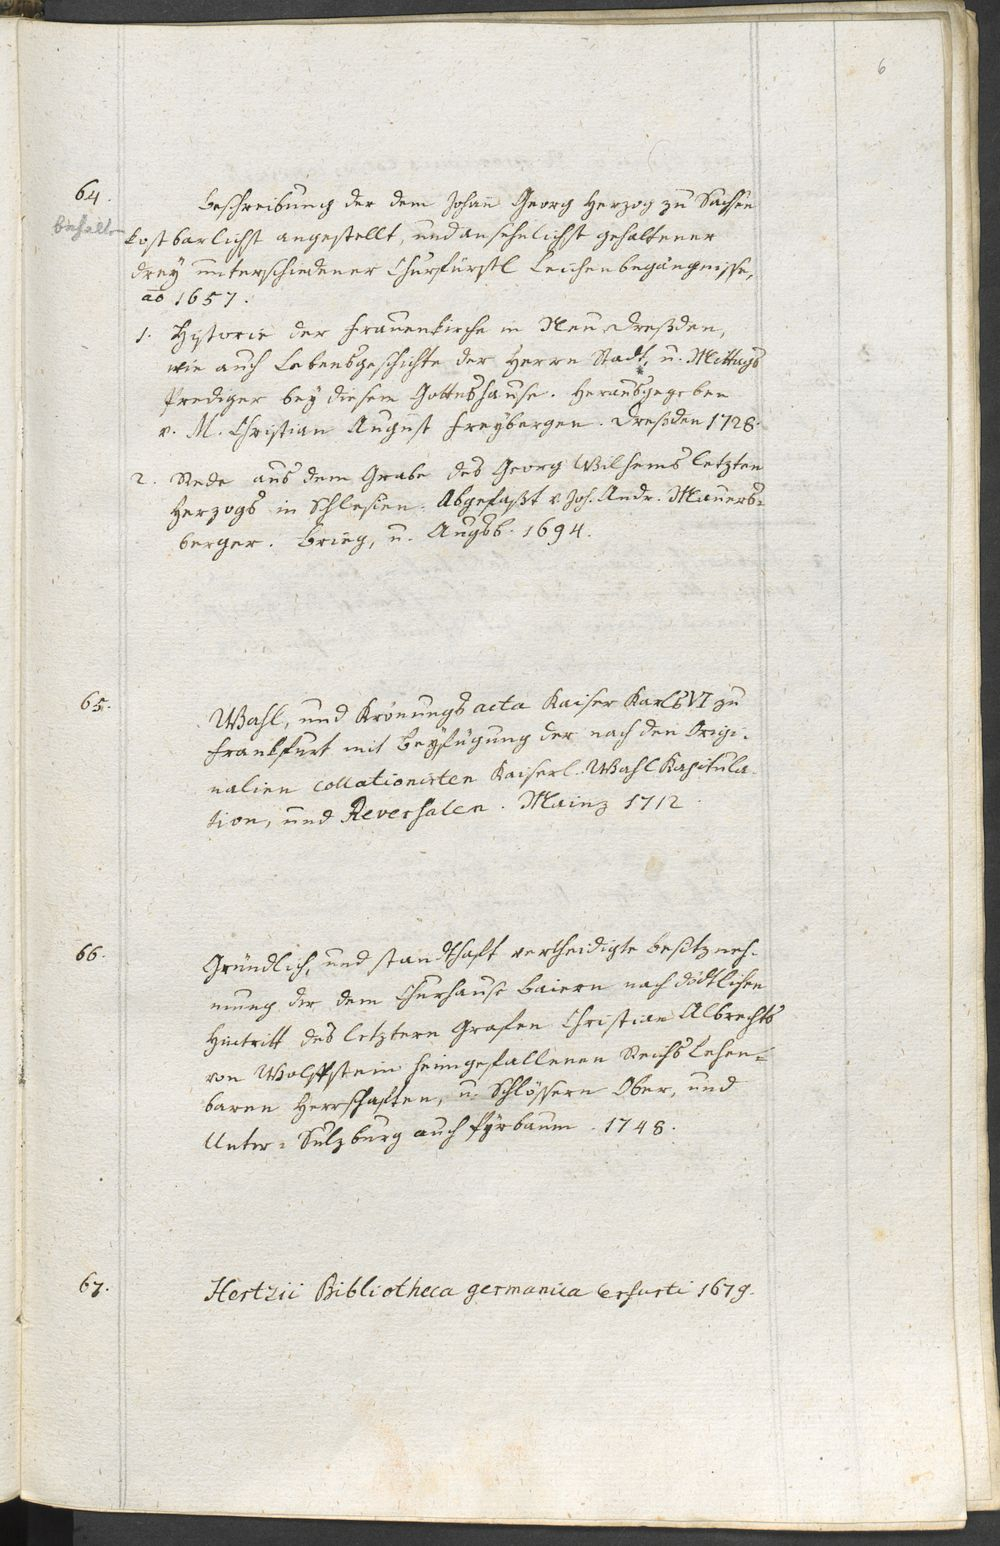 6
64.
behalten
Beschreibung der dem Johan Georg Herzog zu Sachsen
kostbarlichst angestellt, und ansehnlichst gehaltener
drey unterschiedener Churfürstl Leichenbegängnisse,
ao 1657.
1. Historie der Frauenkirche in Neu Dreßden,
wie auch Lebensgeschichte der Herrn Stadt, u. Mittags
Prediger bey diesem Gotteshause. Herausgegeben
v. M. Christian August Freybergen. Dreßden 1728.
2. Rede aus dem Grabe des Georg Wilhems letzten
Herzogs in Schlesien. Abgefaßt v. Joh. Andr. Mauers-
berger. Brieg, u. Augsb. 1694.
65.
Wahl, und Krönungs acta Kaiser Karls VI zu
Frankfurt mit Beyfügung der nach den Origi-
nalien collationirten Kaiserl. Wahl Kapitula-
tion, und Reversalen. Mainz 1712.
66.
Gründlich, und standhaft vertheidigte Besitzneh-
mung der dem Churhause Baiern nach tödtlichen
Hintritt des letztern Grafen Christian Albrechts
von Wolffstein heimgefallenen Reichslehen-
baren Herrschaften, u. Schlössern Ober, und
Unter-Sulzburg auch Pyrbaum. 1748.
67.
Hertzii Bibliotheca germanica Erfurti 1679.